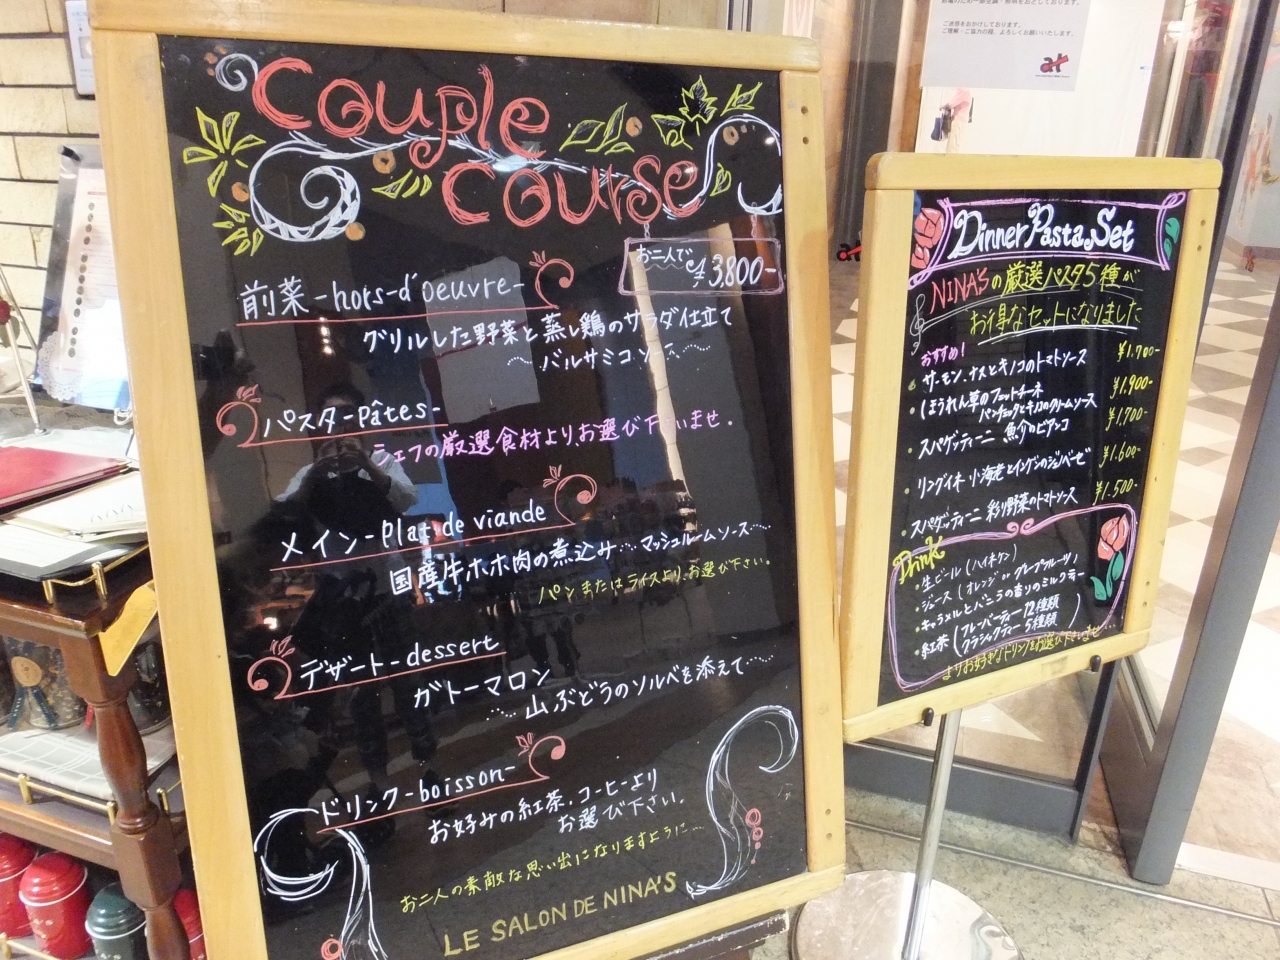 Couple
Course
お二人で ¥3,800-
前菜-hors-d'oeuvre-
グリルした野菜と蒸し鶏のサラダ仕立て
バルサミコソース
パスタ-pâtes-
シェフの厳選食材より、お選び下さいませ。
メイン-plat de viande
国産牛ホホ肉の煮込み…マッシュルームソース…
パンまたはライスより、お選び下さい。
デザート-dessert
ガトーマロン
…山ぶどうのソルベを添えて…
ドリンク-boisson-
お好みの紅茶、コーヒーより
お選び下さい。
お二人の素敵な思い出になりますように…
LE SALON DE NINA'S
Dinner Pasta Set
NINA'Sの厳選パスタ5種が
お得なセットになりました
おすすめ!
サーモン、ナスとキノコのトマトソース ¥1.700-
ほうれん草のフェットチーネ
パンチェッタとキノコのクリームソース ¥1.900-
スパゲッティーニ 魚介のビアンコ ¥1.700
リングイネ 小海老とインゲンのジェノベーゼ ¥1.600-
スパゲッティーニ 彩り野菜のトマトソース ¥1.500-
Drink
・生ビール(ハイネケン)
・ジュース(オレンジ or グレープフルーツ)
・キャラメルとバニラの香りのミルクティー
・紅茶(フレーバーティー 12種類
クラシックティー 5種類)
よりお好きなドリンクをお選び下さいませ…
ご迷惑をおかけしております。
ご理解・ご協力の程、よろしくお願いいたします。